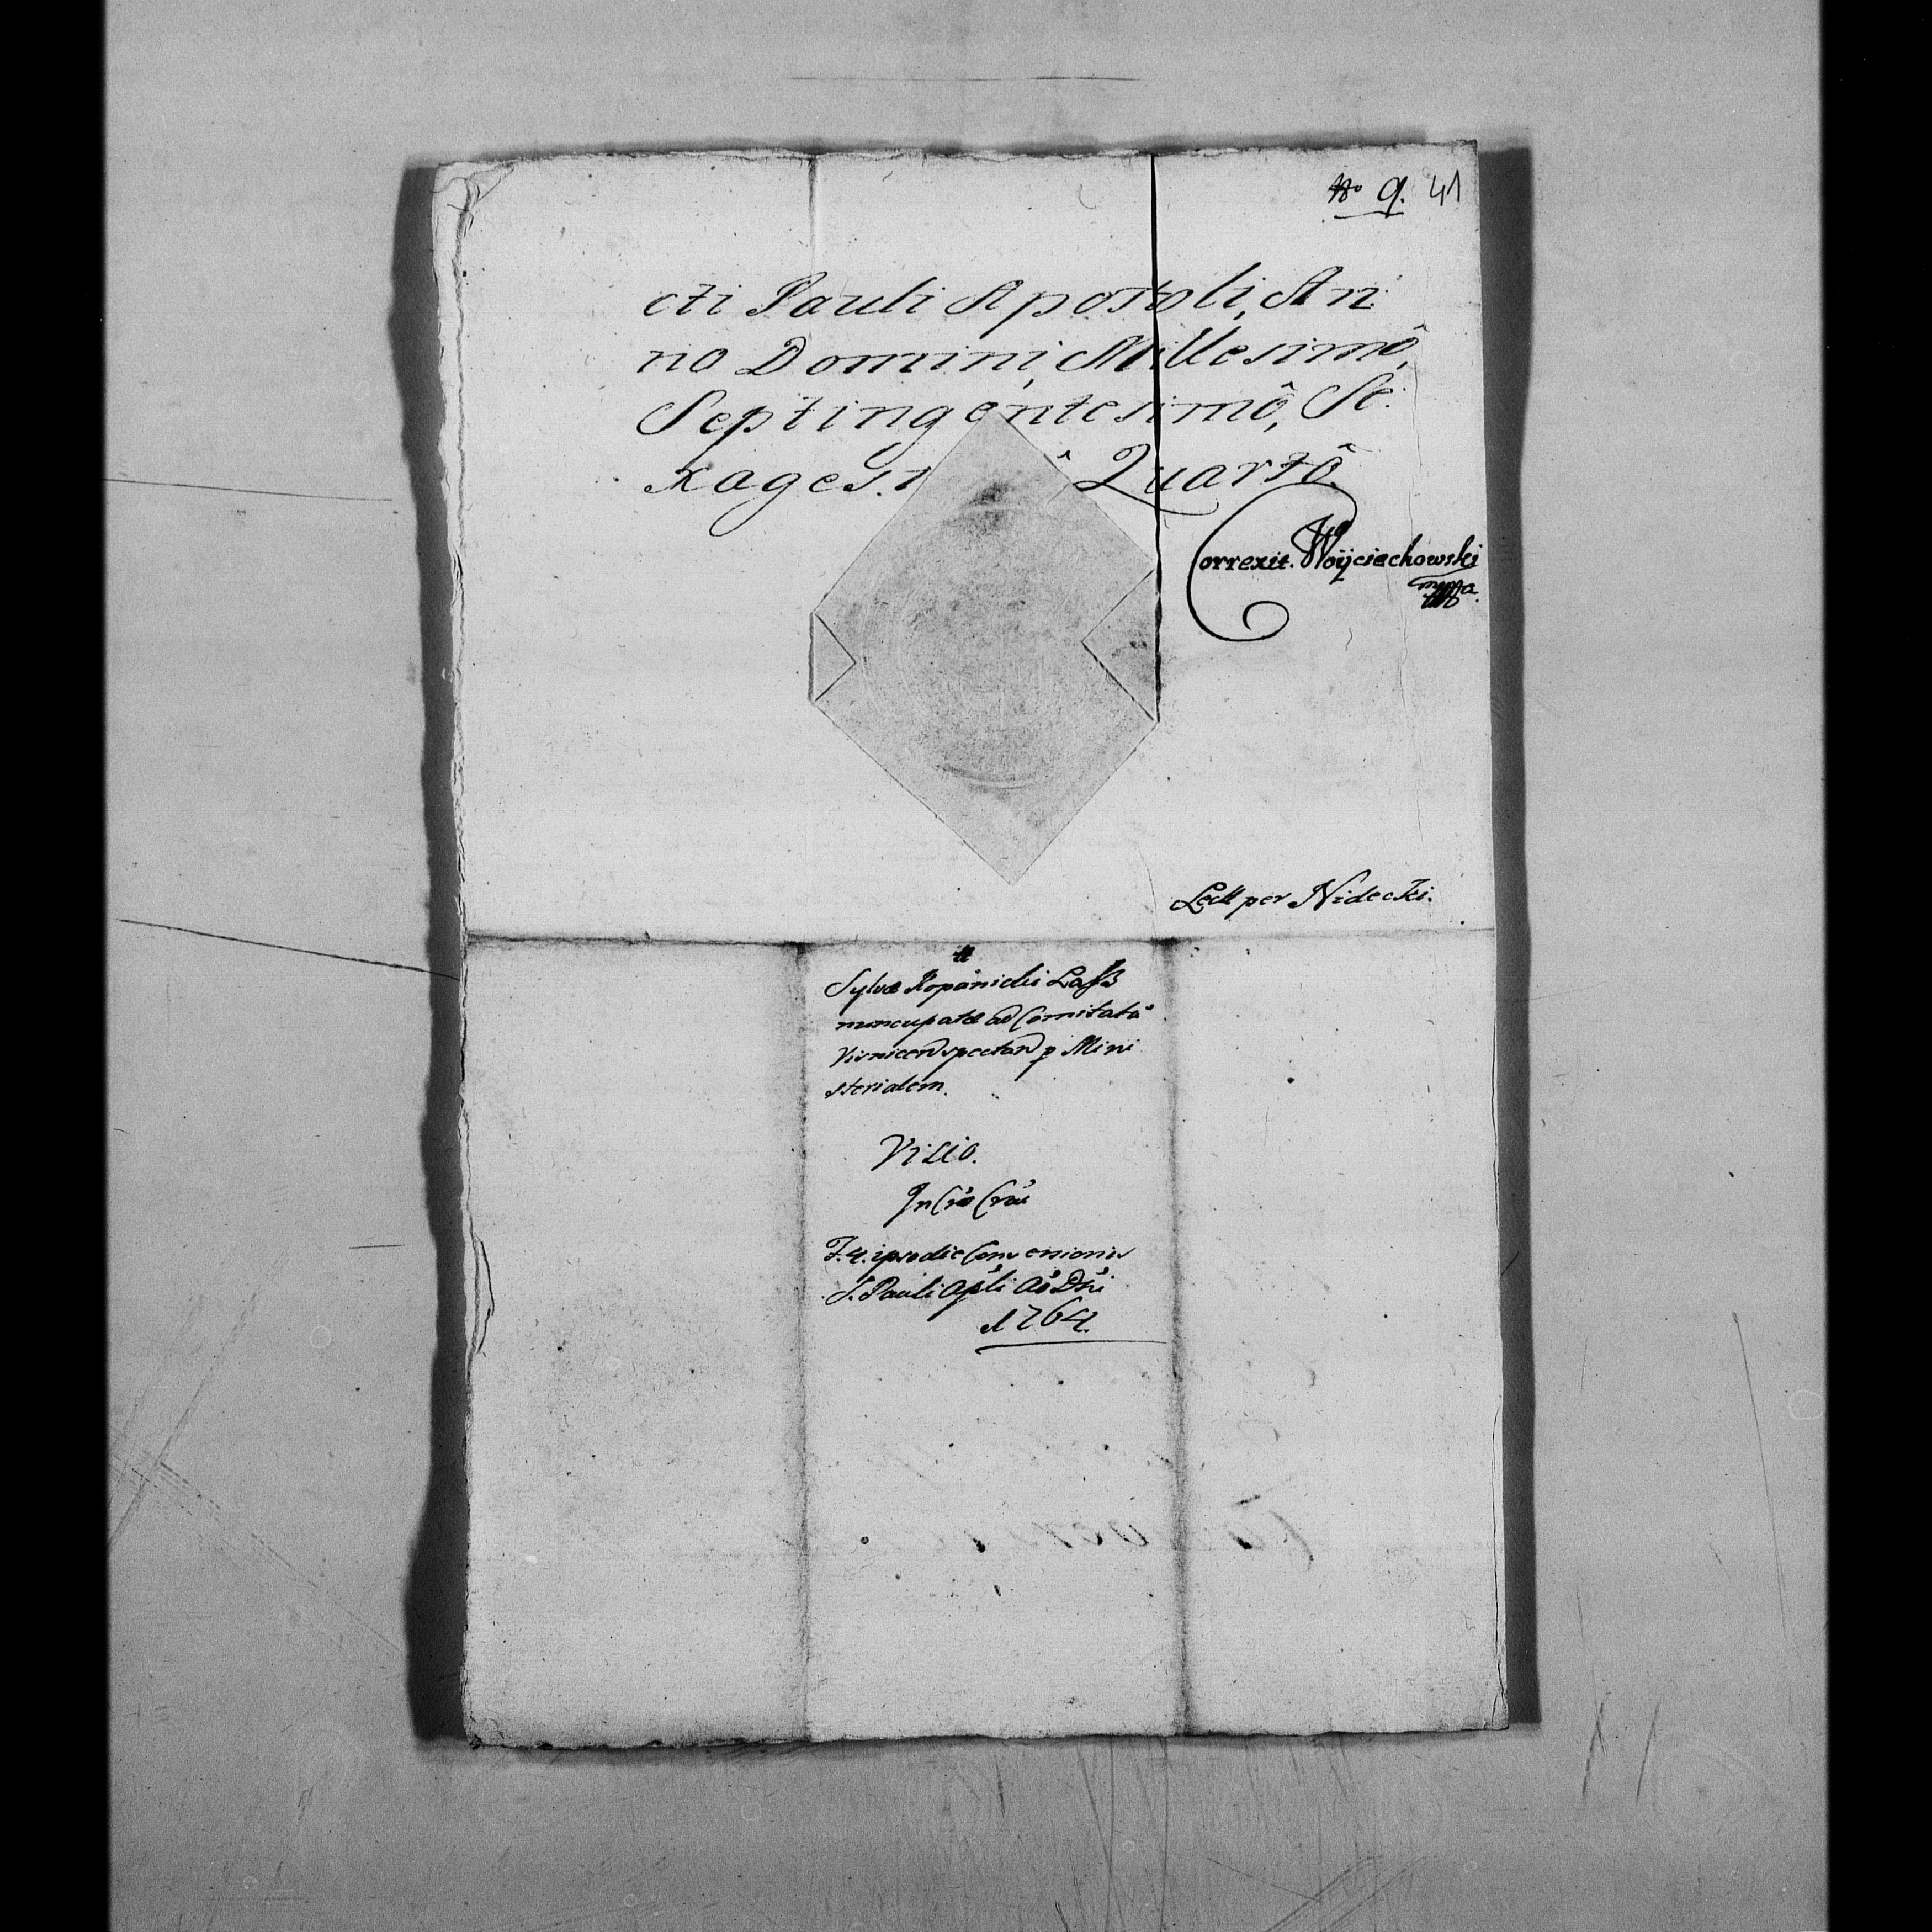 No 9. 41
cti Pauli Apostoli, An
no Domini, Millesimô,
Septingentesimô, Se
xagesi ô Quartô.
Correxit. Woÿciechowski
mppa.
Lect per Nidecki.
Sylvæ Kopaniclis Lass
nuncupatæ ad Comitatũ
Visnicen spectan p Mini
sterialem.
Visio.
In
F. 4. ipso die Conversionis
S. Pauli Apłi Ao Dni
1764.